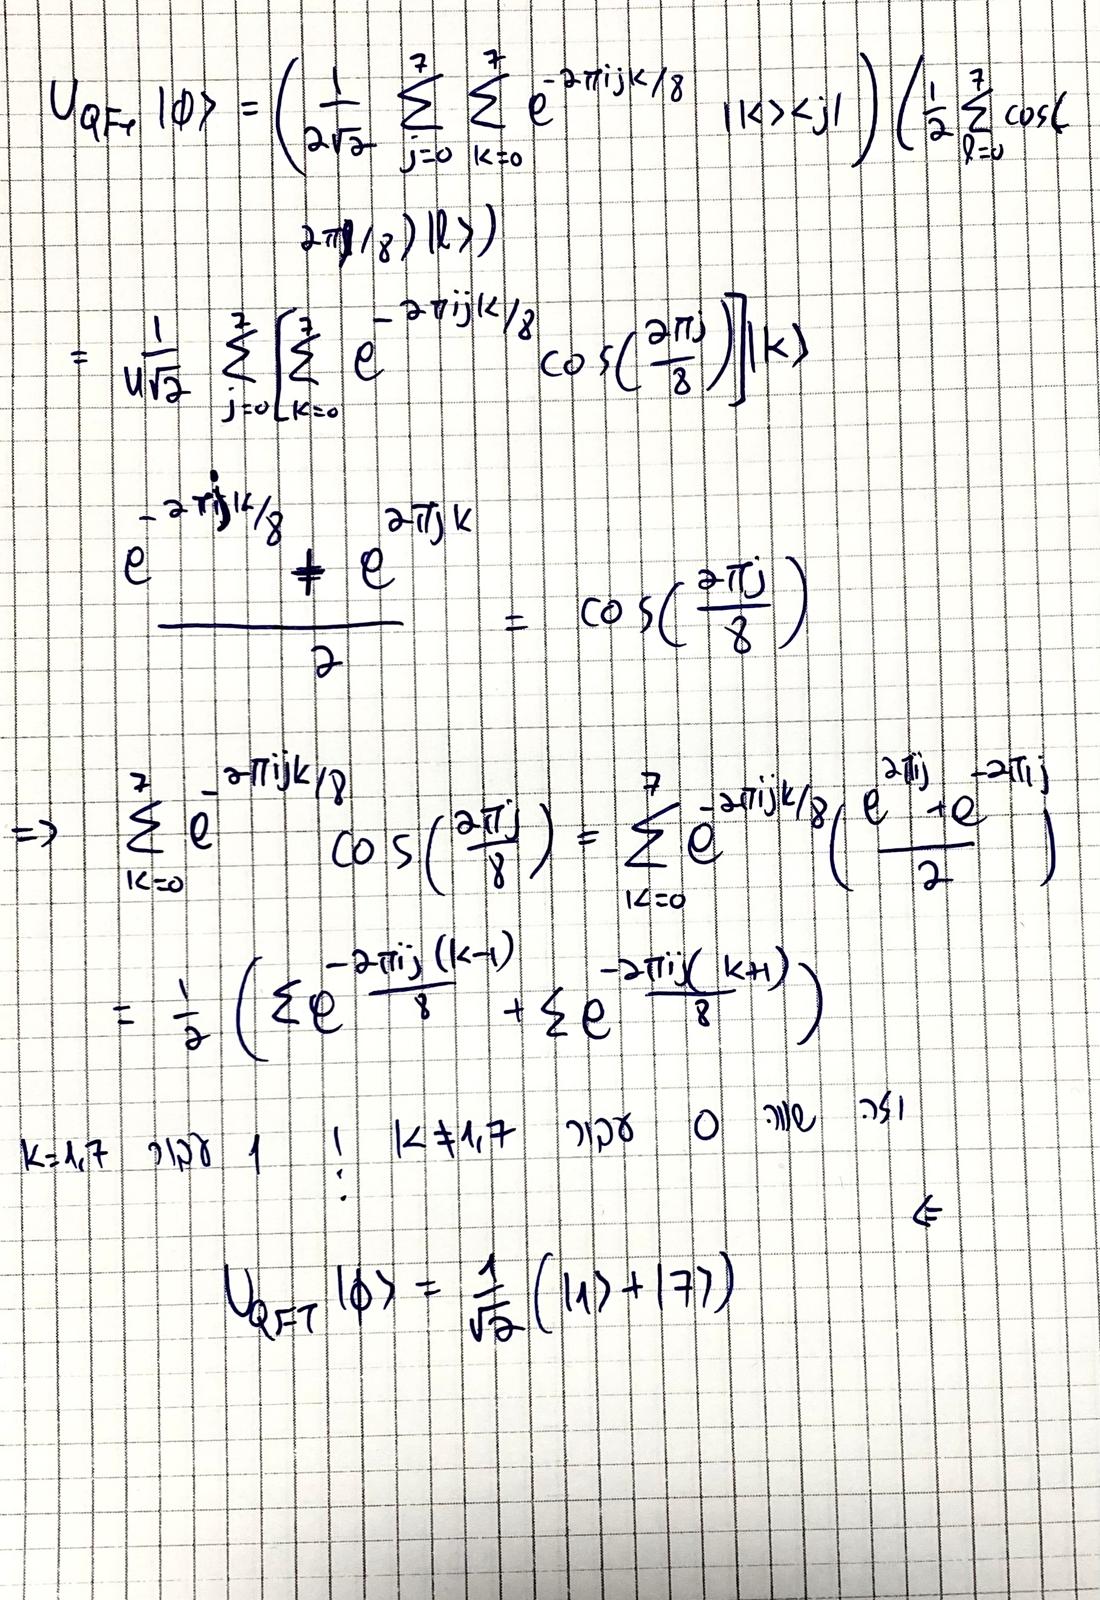 U_{QFT} |φ> = ( 1/(2√2) Σ_{j=0}^{7} Σ_{k=0}^{7} e^{-2πijk/8} |k><j| ) ( 1/2 Σ_{l=0}^{7} cos(
2πl/8) |l>)
= 1/(4√2) Σ_{j=0}^{7} [ Σ_{k=0}^{7} e^{-2πijk/8} cos(2πj/8) ] |k>
(e^{-2πijk/8} + e^{2πjk}) / 2 = cos(2πj/8)
=> Σ_{k=0}^{7} e^{-2πijk/8} cos(2πj/8) = Σ_{k=0}^{7} e^{-2πijk/8} ( (e^{2πij} + e^{-2πij}) / 2 )
= 1/2 ( Σ e^{-2πij(k-1)/8} + Σ e^{-2πij(k+1)/8} )
וזה שווה 0 עבור k≠1,7 ; 1 עבור k=1,7
⇐
U_{QFT} |φ> = 1/√2 (|1> + |7>)